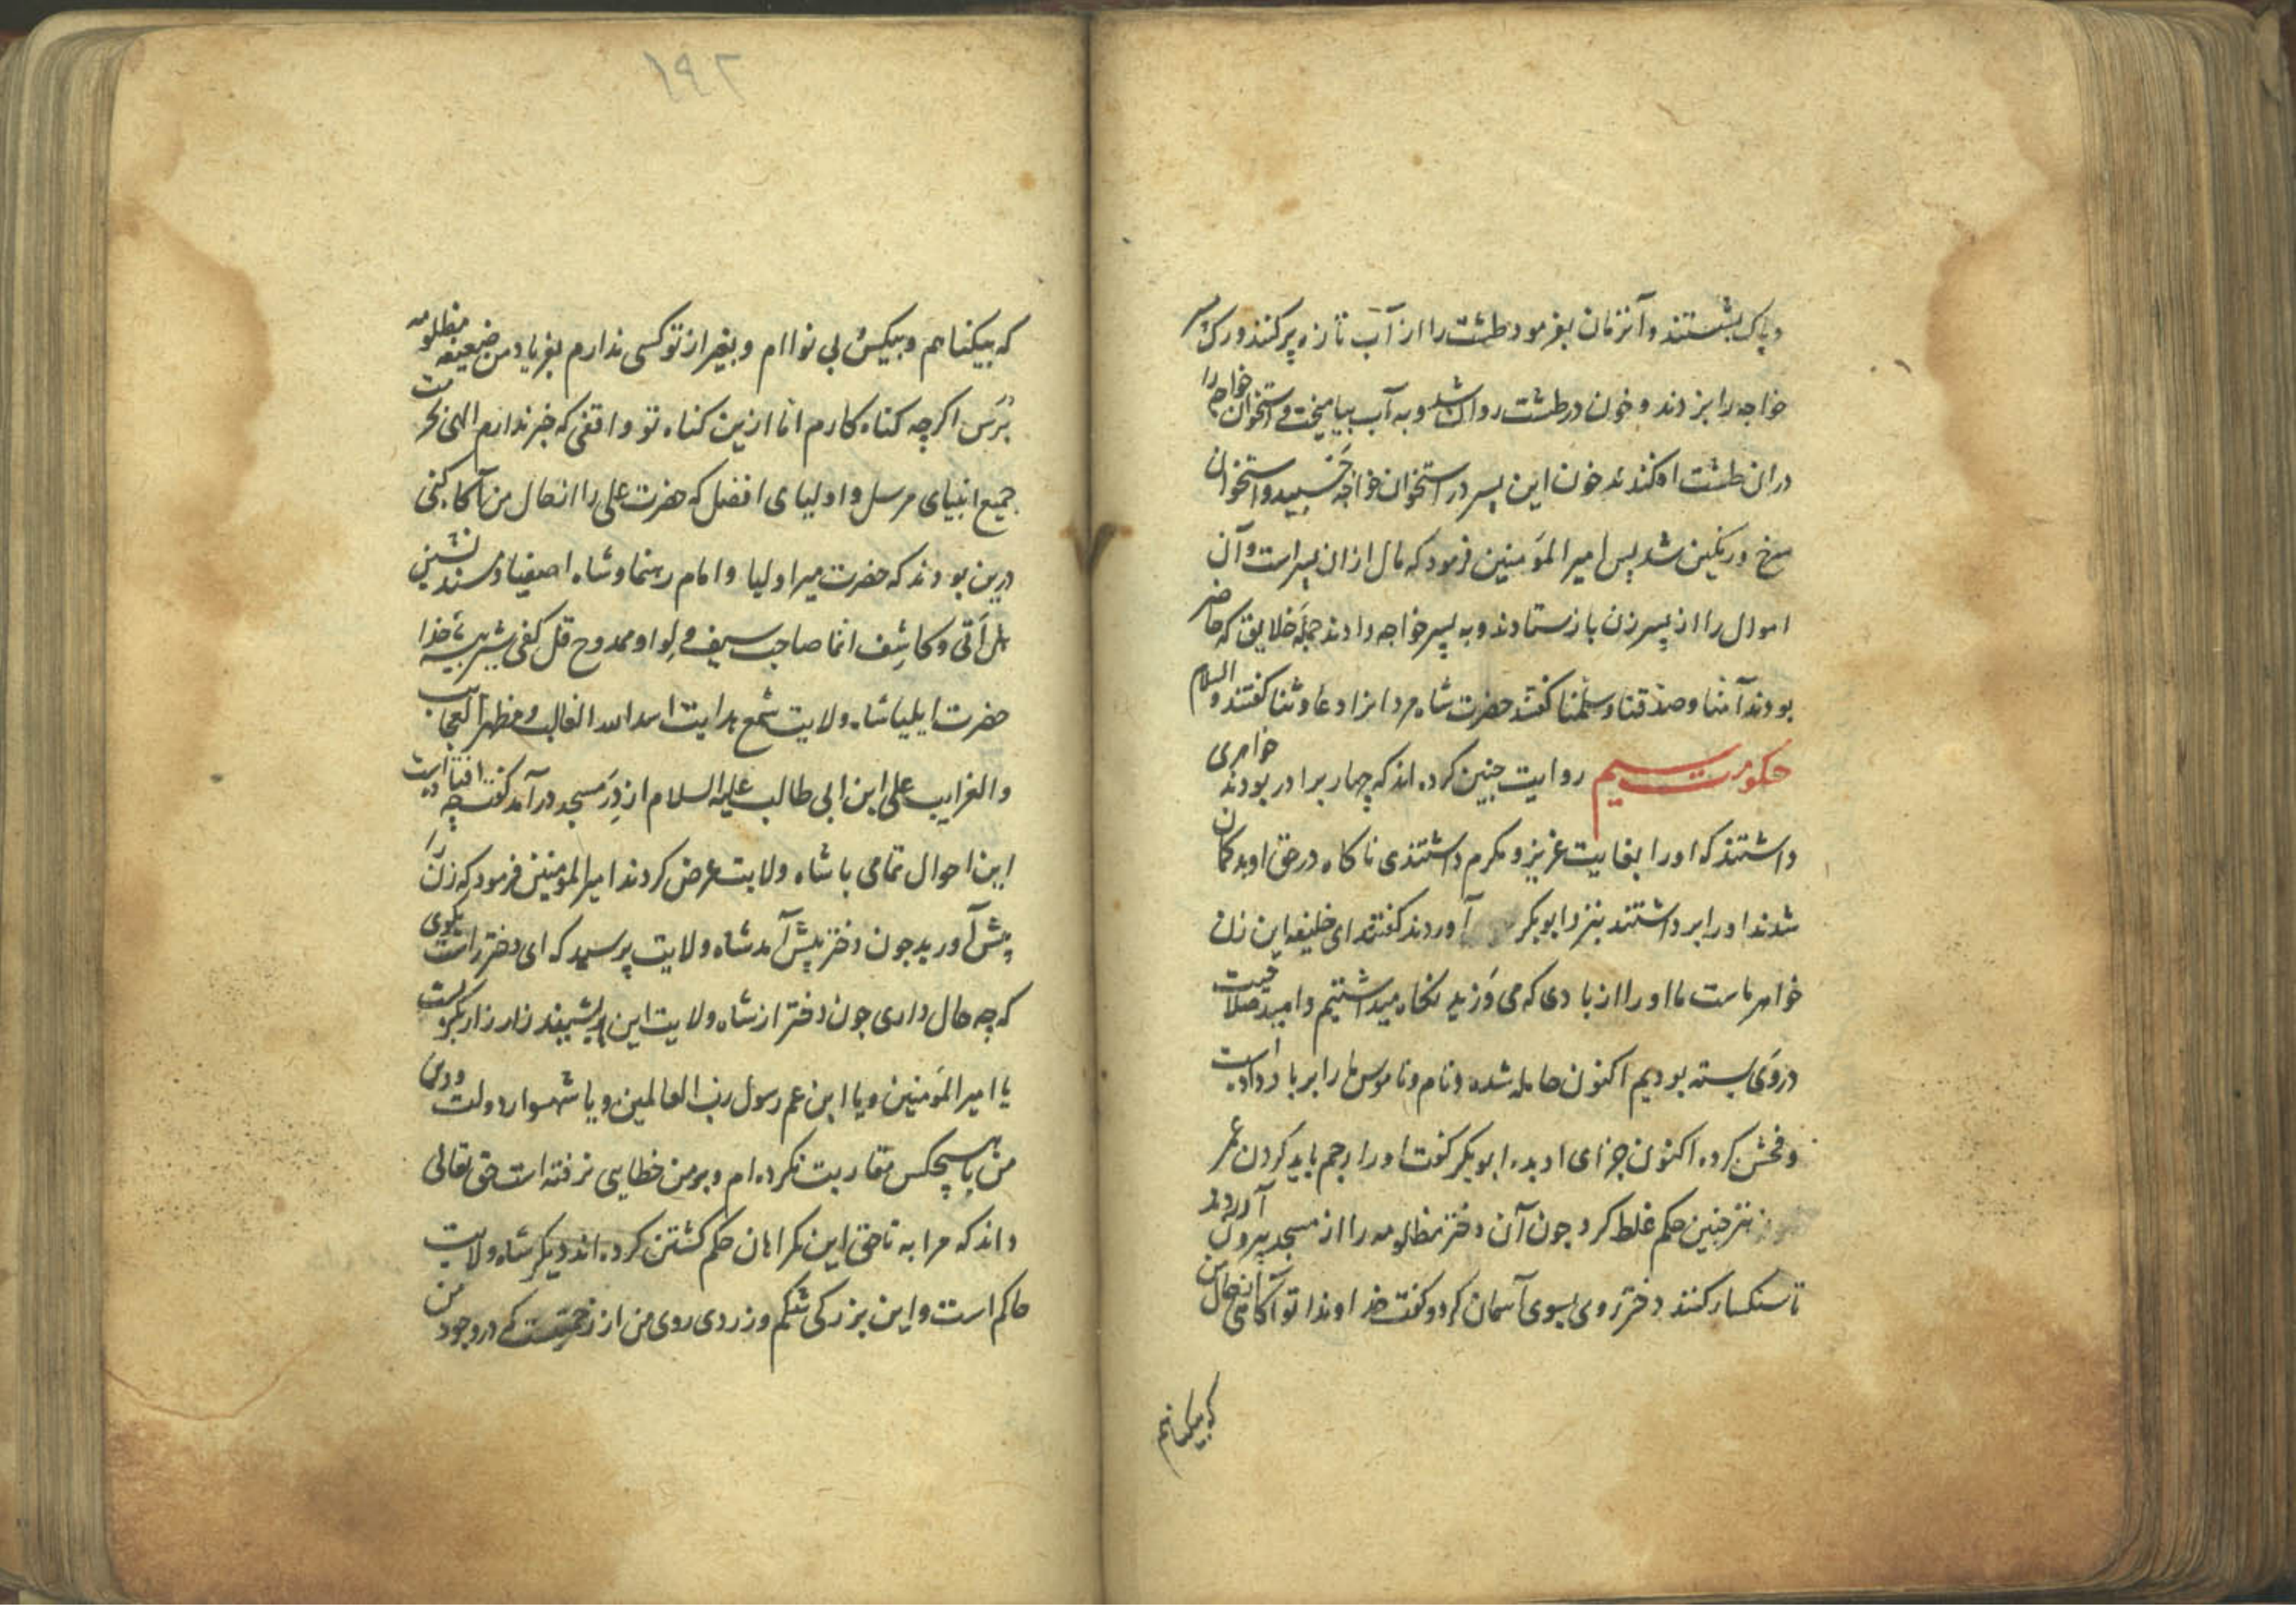 و پاک بشستند و آنزمان بفرمود طشت را از آب تازه پر کنند و رک پسر
خواجه را بزدند و خون در طشت روان شد و به آب بیامیخت و استخوان خواجه را
در ان طشت افکندند خون این پسر در استخوان خواجه چسپید و استخوان
سرخ و رنکین شد پس امیر المؤمنین فرمود که مال از ان پسر است و آن
اموال را از پسر زن بازستادند و به پسر خواجه دادند جمله خلایق که حاضر
بودند آمنا و صدقنا و سلمنا کفتند حضرت شاه مردانرا دعا و ثنا کفتند والسلام
حکومت سیم روایت چنین کرده اند که چهار برادر بودند خواهری
داشتند که او را بغایت عزیز و مکرم داشتندی ناکاه در حق او بد کمان
شدند او را برداشتند بنزد ابوبکر آوردند کفتند ای خلیفه این زن
خواهر ماست ما او را از بادی که می وزید نکاه میداشتیم و امید صلاحیت
در وی بسته بودیم اکنون حامله شده و نام و ناموس ما را بر باد داده است
و فحش کرده اکنون جزای او بده ابوبکر کفت او را رجم باید کردن عمر
نیز چنین حکم غلط کرد چون آن دختر مظلومه را از مسجد بیرون آوردند
تا سنکسار کنند دختر روی بسوی آسمان کرد و کفت خداوندا تو آکاهی از حال من
که بیکناهم
۱۹۲
که بیکناهم و بیکس بی نوا ام و بغیر از تو کسی ندارم بفریاد من ضعیفه مظلومه
برس اکرچه کناه کارم اما ازین کناه تو واقفی که خبر ندارم الهی بحرمت
جمیع انبیای مرسل و اولیای افضل که حضرت علی را از حال من آکاه کنی
درین بودند که حضرت میر اولیا و امام رهنما و شاه اصفیا و مسند نشین
هل آتی و کاشف انما صاحب سیف و لوا و ممدوح قل کفی شیر بیشه خدا
حضرت ایلیا شاه ولایت شمع هدایت اسد الله الغالب و مظهر العجایب
و الغرایب علی ابن ابی طالب علیه السلام از در مسجد درآمد کفت چه افتاده است
این احوال تمامی با شاه ولایت عرض کردند امیر المؤمنین فرمود که زن را
پیش آورید چون دختر پیش آمد شاه ولایت پرسید که ای دختر راست بکوی
که چه حال داری چون دختر از شاه ولایت این بشنید زار زار بکریست
یا امیر المؤمنین و یا ابن عم رسول رب العالمین و یا شهسوار دولت و دین
من با هیچکس مقاربت نکرده ام و بر من خطایی نرفته است حق تعالی
داند که مرا به ناحق این مکراهان حکم کشتن کرده اند دیکر شاه ولایت
حاکم است و این بزرکی شکم و زردی روی من از زحمتیست که در وجود من